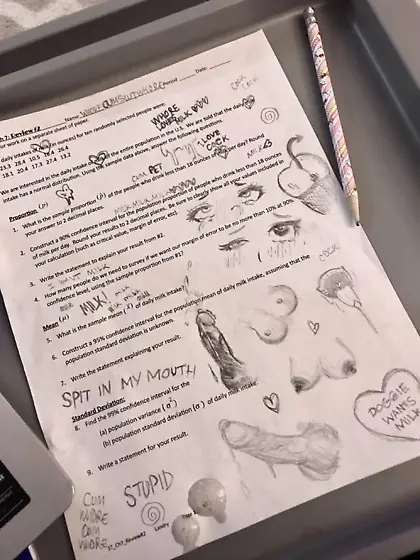 Name WHORE CUMSLUT WHORE Period Date:
h 7: Review #2
our work on a separate sheet of paper.
COCK
WHORE
LOVES MILK
daily intakes ounces) for ten randomly selected people were:
23.3 28.4 10.5 26.4
18.1 20.4 17.3 27.4 13.2
We are interested in the daily intake the entire population in the U.S. We are told that the daily
intake has a normal distribution. Using the sample data above, answer the following questions.
I LOVE
COCK
MILK
CUM PET
Proportion (p)
1. What is the sample proportion of the people who drink less than 18 ounces per day? Round
your answer to 2 decimal places.
MILK MILK MILK
2. Construct a 90% confidence interval for the population proportion of people who drink less than 18 ounces
of milk per day. Round your results to 2 decimal places. Be sure to clearly show all your values included in
your calculation (such as critical value, margin of error, etc)
3. Write the statement to explain your result from #2.
I WANT MILK
4. How many people do we need to survey if we want our margin of error to be no more than 10% at 90%
confidence level, using the sample proportion from #1?
MILK!
COCK
Mean (μ)
5. What is the sample mean (x̄) of daily milk intake?
6. Construct a 99% confidence interval for the population mean of daily milk intake, assuming that the
population standard deviation is unknown.
7. Write the statement explaining your result.
SPIT IN MY MOUTH
DOGGIE
WANTS
MILK
Standard Deviation:
8. Find the 99% confidence interval for the
(a) population variance (σ²)
(b) population standard deviation (σ) of daily milk intake.
9. Write a statement for your result.
STUPID
CUM
WHORE
CUM
WHORE
Landry